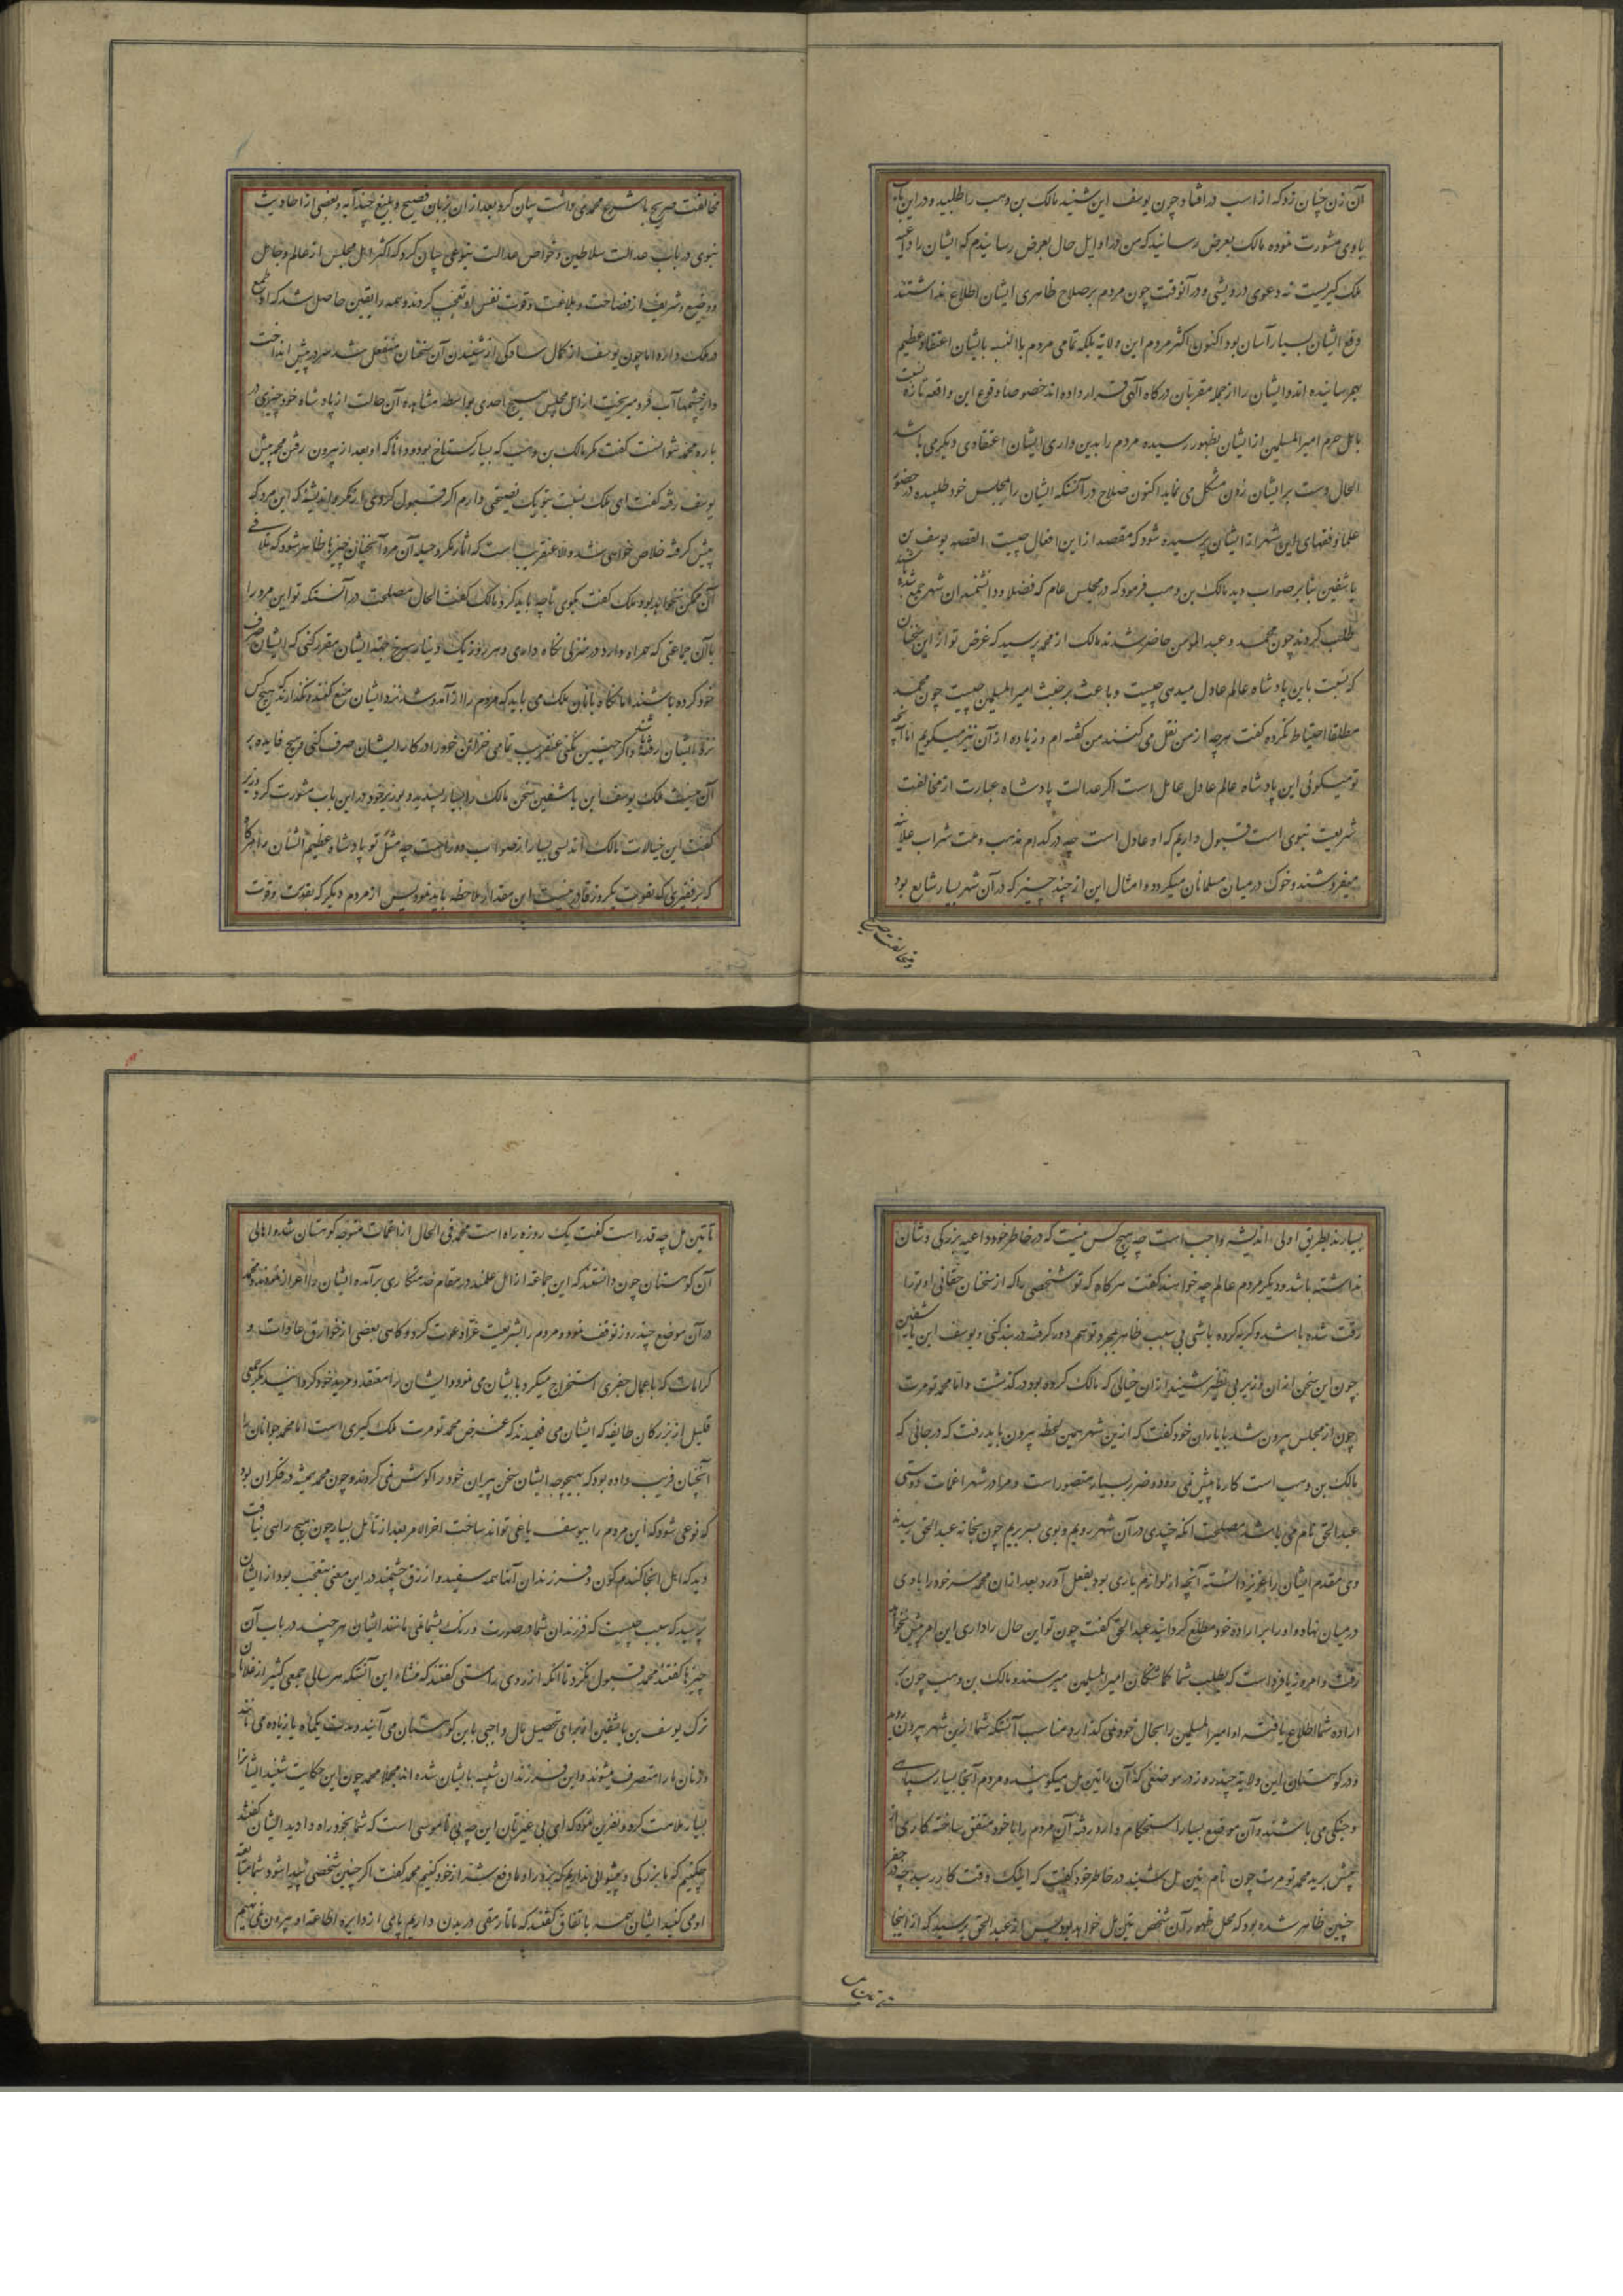 آن زن چنان زد که از اسب در افتاد چون یوسف این شنید مالک بن وهب را طلبیده در این باب
با وی مشورت نموده مالک بعرض رسانید که من در اوایل حال بعرض رسانیدم که ایشان را داعیه
ملک گیریست نه دعوی درویشی و در آنوقت چون مردم بر صلاح ظاهری ایشان اطلاع نداشتند
دفع ایشان بسیار آسان بود اکنون اکثر مردم این ولایة بلکه تمامی مردم بالنسبه بایشان اعتقاد عظیم
بهم رسانیده اند و ایشان را از جمله مقربان درگاه آلهی قرار داده اند خصوصاً وقوع این واقعه تازه نسبت
باهل حرم امیرالمسلمین از ایشان بظهور رسیده مردم را بدین داری ایشان اعتقادی دیگر می باشد
الحال دست بر ایشان زدن مشکل می نماید اکنون صلاح در آنستکه ایشان را بمجلس خود طلبیده در حضور
علما و فقهای این شهر از ایشان پرسیده شود که مقصد از این افعال چیست القصه یوسف بن
تاشفین بنابر صواب دید مالک بن وهب فرمود که در مجلس عام که فضلا و دانشمندان شهر جمع شده باشند
طلب کردند چون محمد و عبد المومن حاضر شدند مالک از محمد پرسید که غرض تو از این سخنان
که نسبت باین پادشاه عالم عادل میدهی چیست و باعث بر خبث امیر المسلمین چیست چون محمد
مطلقا احتیاط نکرده گفت هرچه از من نقل می کنند من گفته ام و زیاده از آن نیز میگویم اما آنچه
تو میگوئی این پادشاه عالم عادل عامل است اگر عدالت پادشاه عبارت از مخالفت
شریعت نبوی است قبول داریم که او عادل است چه در کدام مذهب و ملت شراب علانیه
میفروشند و خوک در میان مسلمانان میگردد و امثال این از چند چیز که در آن شهر بسیار شایع بود
و مخالفت صریح
مخالفت صریح با شرع محمدی داشت بیان کرد بعد از ان بزبان فصیح و بلیغ چند آیه و بعضی از احادیث
نبوی در باب عدالت سلاطین و خواص عدالت بنوعی بیان کرد که اکثر اهل مجلس از عالم و جاهل
و وضیع و شریف از فصاحت و بلاغت و قوت نفس او تعجب کردند و همه را یقین حاصل شد که او طمع
در ملک دارد اما چون یوسف از کمال سادگی از شنیدن آن سخنان منفعل شد سر در پیش انداخت
و از چشمها آب فرو میریخت از اهل مجلس هیچ احدی بواسطه مشاهده آن حالت از پادشاه خود چیزی در
باره محمد نتوانست گفت مگر مالک بن وهب که بسیار گستاخ بود و دانا که او بعد از بیرون رفتن محمد پیش
یوسف رفته گفت ای ملک نسبت بتو یک نصیحتی دارم اگر قبول کردی از مکر و اندیشه که این مرد
پیش گرفته خلاص خواهی شد و الا عنقریب است که از مکر و حیله آن مرد آنچنان چیزها ظاهر شود که تلافی
آن ممکن نخواهد بود ملک گفت بگوی تا چه باید کرد مالک گفت الحال مصلحت در آنستکه تو این مرد را
با آن جماعتی که همراه دارد در منزلی نگاه داری و هر روز یک دینار سرخ جهة ایشان مقرر کنی که ایشان صرف
خود کرده باشند اما نگاه بانان ملک می باید که مردم را از آمد و شد نزد ایشان منع کنند و نگذارند که هیچ کس
نزد ایشان رفته باشد و اگر چنین نکنی عنقریب تمامی خزائن خود را در کار ایشان صرف کنی و هیچ فایده بر
آن نیست ملک یوسف ابن تاشفین سخن مالک را بسیار پسندید و بوزیر خود در این باب مشورت کرد وزیر
گفت این خیالات مالک اندلسی بسیار از صواب دور است چه مثل تو پادشاه عظیم الشان را هرگاه
که بر فقیری که بقوت یکروز قادر نیست این مقدار ملاحظه باید نمود پس از مردم دیگر که بقدرت و قوت
بسیارند بطریق اولی اندیشه واجب است چه هیچ کس نیست که در خاطر خود داعیه بزرگی و شان
نداشته باشد و دیگر مردم عالم چه خواهند گفت هرگاه که تو شخصی را که از سخنان حقانی او ترا
رقت شده باشد و گریه کرده باشی بی سبب ظاهر بمجرد توهم دور گرفته در بند کنی و یوسف ابن تاشفین
چون این سخن از ان وزیر بی نظیر شنید از ان خیالی که مالک کرده بود در گذشت و اما محمد تومرت
چون از مجلس بیرون شد با یاران خود گفت که ازین شهر همین لحظه بیرون باید رفت که در جائی که
مالک بن وهب است کار ما پیش نمی رود و ضرر بسیار متصور است و مرا در شهر اغمات دوستی
عبدالحق نام می باشد مصلحت آنکه چندی در آن شهر رویم و بوی بسر بریم چون بخانه عبدالحق رسیدند
وی مقدم ایشان را عزیز دانسته آنچه از لوازم یاری بود بفعل آورد بعد از ان محمد سر خود را با وی
در میان نهاد و او را بر اراده خود مطلع گردانید عبدالحق گفت چون تو این حال را داری این امر پیش نخواهد
رفت و امروز یا فردا است که بطلب شما گماشتگان امیر المسلمین میرسند و مالک بن وهب چون بر
اراده شما اطلاع یافته او امیر المسلمین را بحال خود نمی گذارد مناسب آنستکه شما ازین شهر بیرون روید
و در کوهستان این ولایة چند روز در موضعی که آن را تین مل میگویند و مردم آنجا بسیار سپاهی
و جنگی می باشند و آن موضع بسیار استحکام دارد رفته آن مردم را با خود متفق ساخته کاری از
پیش برید محمد تومرت چون نام تین مل شنید در خاطر خود گفت که اینک وقت کار رسید چه در جفر
چنین ظاهر شده بود که محل ظهور آن شخص تین مل خواهد بود پس از عبدالحق پرسید که از اینجا
تا تین مل
تا تین مل چه قدر است گفت یک روزه راه است محمد فی الحال از اغمات متوجه کوهستان شد و اهالی
آن کوهستان چون دانستند که این جماعة از اهل علمند در مقام خدمتکاری برآمده ایشان را اعزاز نمودند محمد
در آن موضع چند روز توقف نمود و مردم را بشریعت غرا دعوت کرد و گاهی بعضی از خوارق عادات و
کرامات که باعمال جفری استخراج میکرد بایشان می نمود و ایشان را معتقد و مرید خود گردانید مگر جمعی
قلیل از بزرگان طایفه که ایشان می فهمیدند که غرض محمد تومرت ملک گیری است اما محمد جوانان را
آنچنان فریب داده بود که بهیچوجه ایشان سخن پیران خود را گوش نمی کردند و چون محمد همیشه در فکر آن بود
که نوعی شود که این مردم را بیوسف یاغی تواند ساخت اخر الامر بعد از تأمل بسیار چون هیچ راهی نیافت
دید که اهل انجا گندم گون و فرزندان آنها همه سفید و ازرق چشمند در این معنی متعجب بود از ایشان
پرسید که سبب چیست که فرزندان شما در صورت و رنگ بشما نمی مانند ایشان هر چند در باب آن
چیزها گفتند محمد قبول نکرد تا آنکه از روی راستی گفتند که منشاء این آنستکه هر سالی جمعی کثیر از غلامان
ترک یوسف بن تاشفین از برای تحصیل مال واجبی باین کوهستان می آیند و مدت یکماه یا زیاده می مانند
و زنان ما را متصرف میشوند و این فرزندان شبیه بایشان شده اند مجملا محمد چون این حکایت شنید ایشانرا
بسیار ملامت کرده و نفرین نمود که ای بی غیرتان این چه بی ناموسی است که شما بخود راه دادید ایشان گفتند
چکنیم که ما بزرگی و پیشوائی نداریم که بزور او ما دفع شر از خود کنیم محمد گفت اگر چنین شخصی پیدا شود شما متابعة
او می کنید ایشان همه باتفاق گفتند که ما تا رمقی در بدن داریم پای از دایره اطاعة او بیرون نمی نهیم